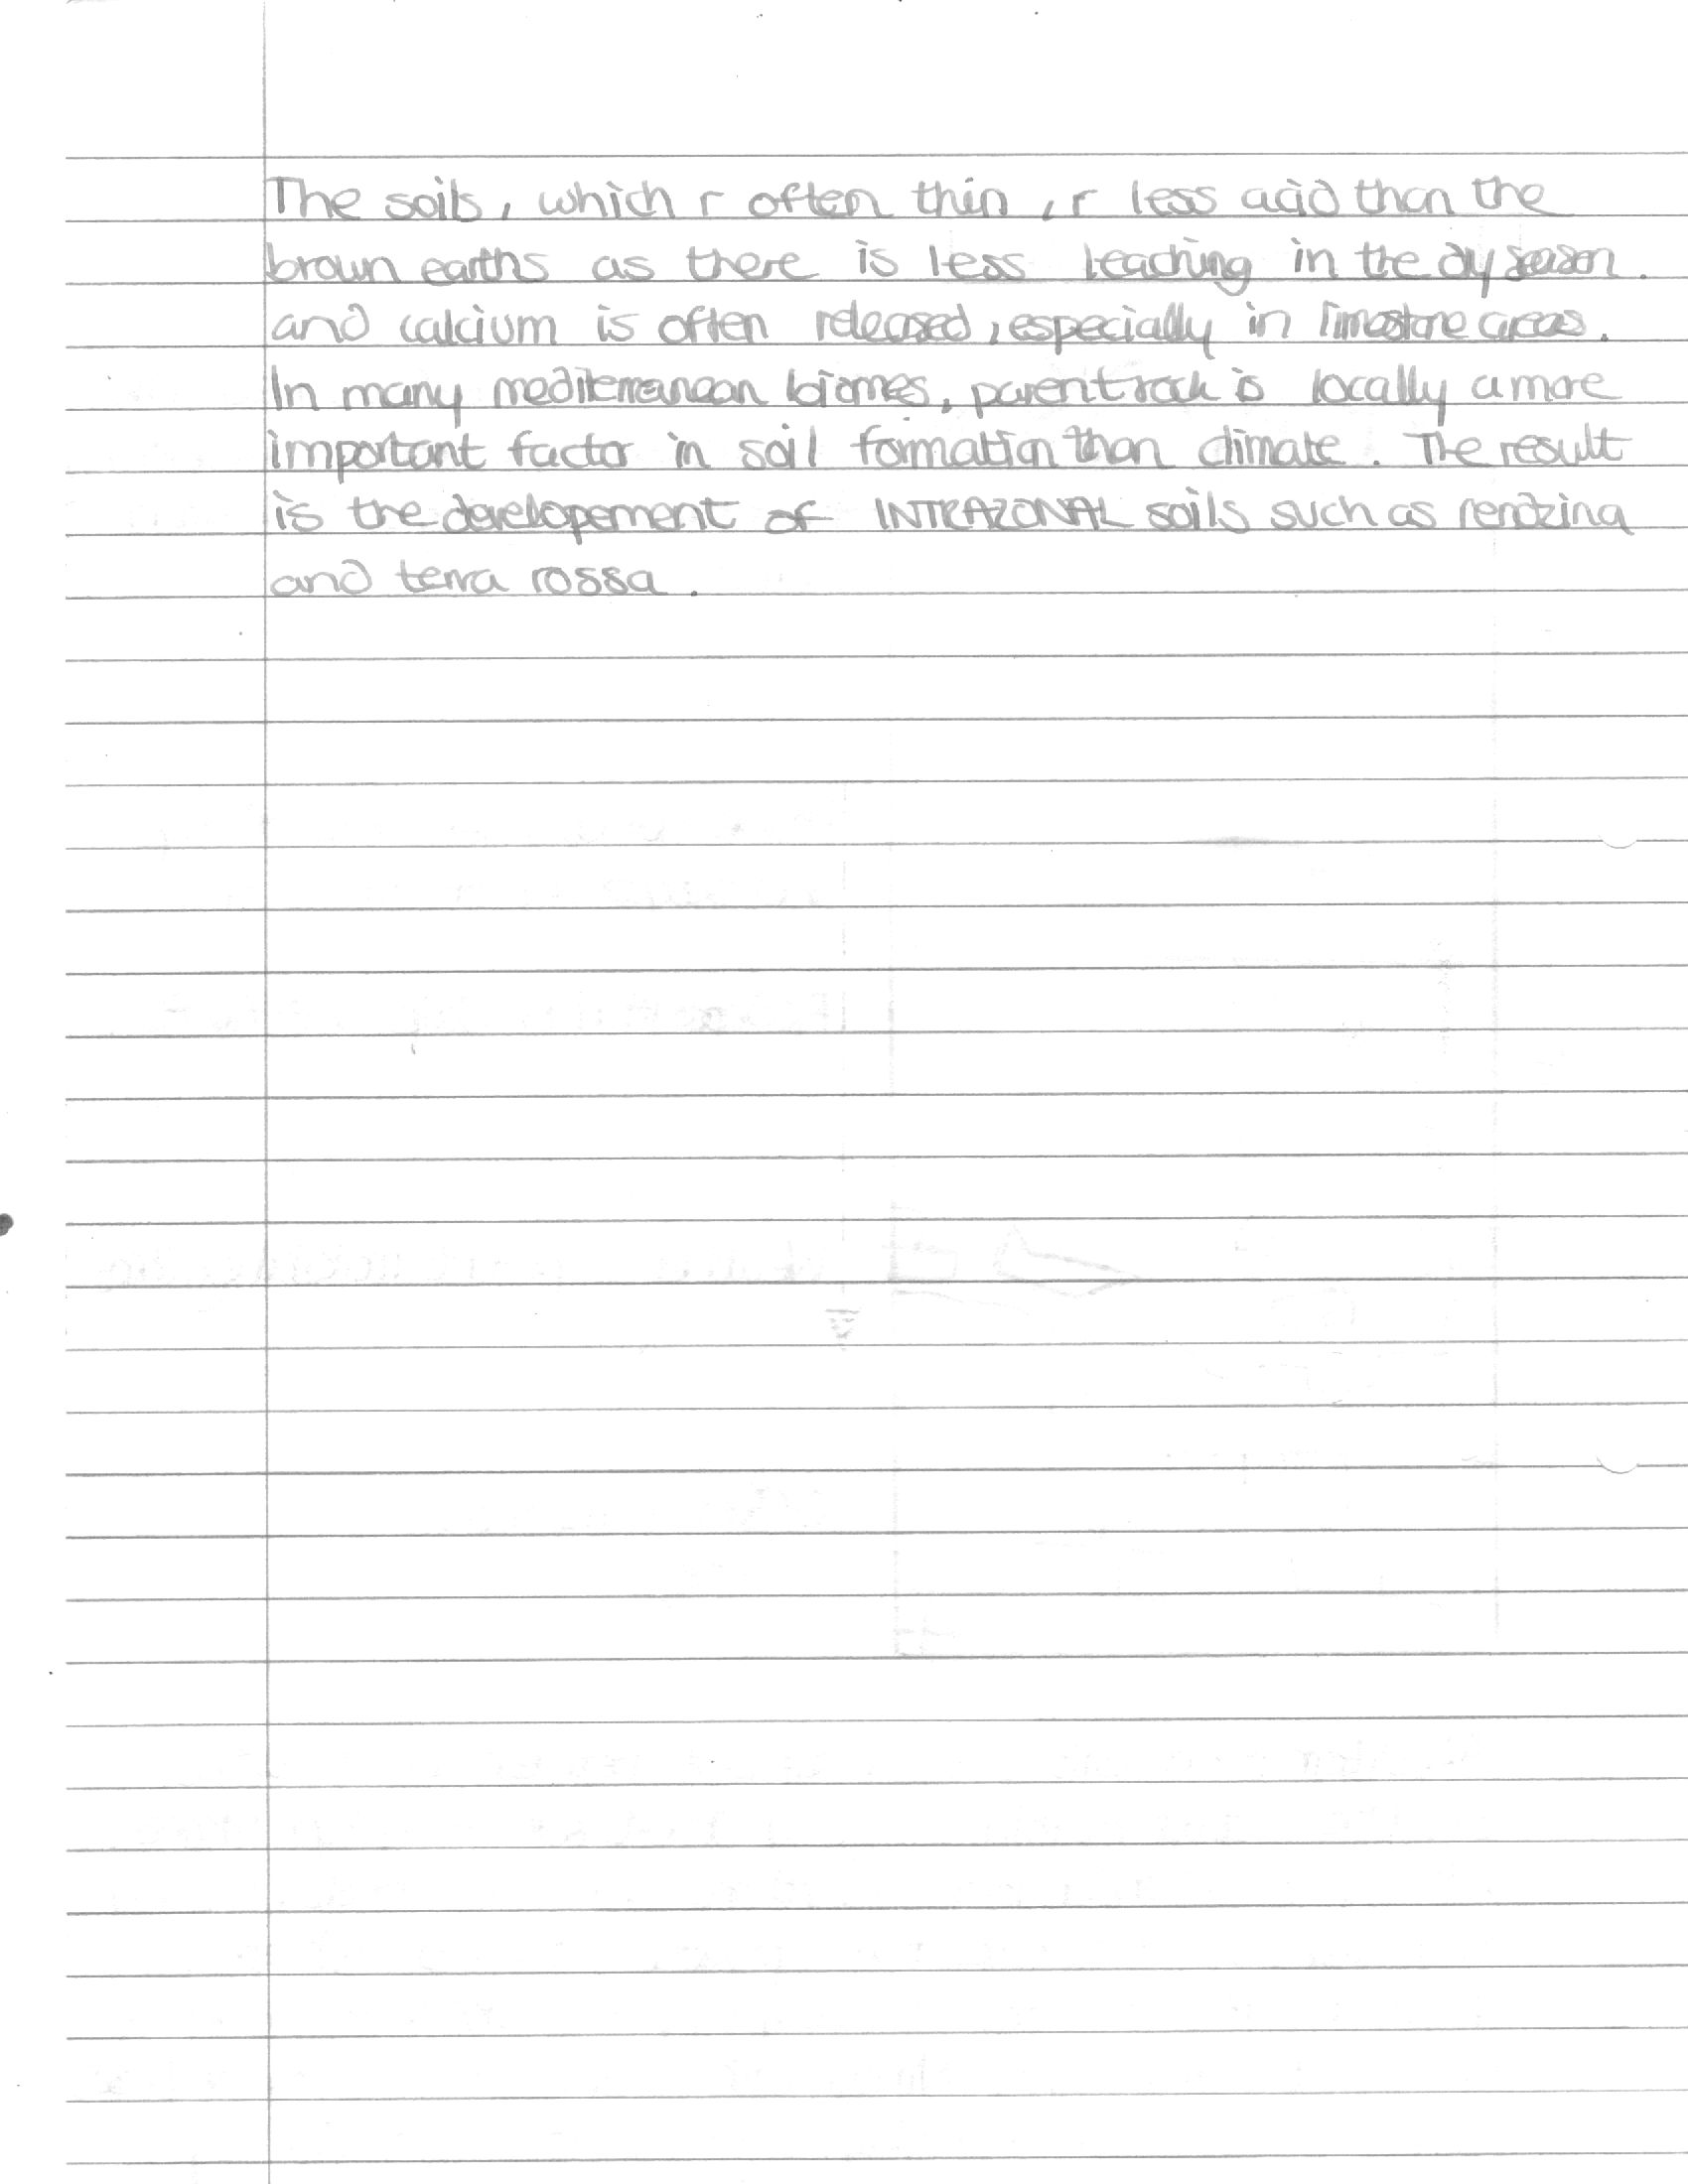 The soils, which r often thin, r less acid than the
brown earths as there is less leaching in the dry season.
and calcium is often released, especially in limestone areas.
In many mediterranean biomes, parent rock is locally a more
important factor in soil formation than climate. The result
is the developement of INTRAZONAL soils such as rendzina
and terra rossa.